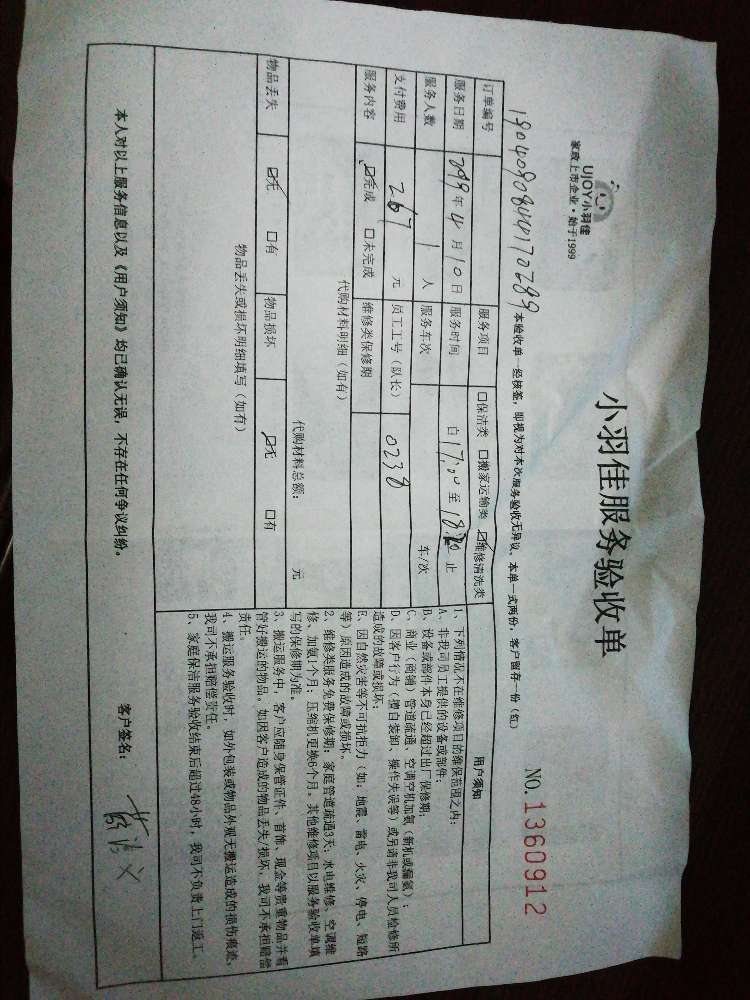 UJOY小羽佳
家政上市企业·始于1999
小羽佳服务验收单
NO.1360912
本验收单一经核签，即视为对本次服务验收无异议，本单一式两份，客户留存一份（红）
订单编号 服务项目 口保洁类 口搬家运输类 ☑维修清洗类
服务日期 年4月10日 服务时间 自17:00至 止
服务人数 1人 服务车次 车/次
支付费用 267元 员工工号（队长） 0238
服务内容 ☑完成 口未完成 维修类保修期
代购材料明细（如有）
代购材料总额： 元
物品丢失 ☑无 口有 物品损坏 ☑无 口有
物品丢失或损坏明细填写（如有）
用户须知
1、下列情况不在维修项目的维保范围之内：
A、非我司员工提供的设备或部件；
B、设备或部件本身已经超过出厂保修期；
C、商业（商铺）管道疏通、空调空机加氨（新机或漏氨）；
D、因客户行为（擅自装卸、操作失误等）或另请非我司人员检修所
造成的故障或损坏；
E、因自然灾害等不可抗拒力（如：地震、雷电、火灾、停电、短路
等）原因造成的故障或损坏。
2、维修类服务免费保修期：家庭管道疏通3天；水电维修、空调维
修、加氨1个月；压缩机更换6个月。其他维修项目以服务验收单填
写的保修期为准。
3、搬运服务中，客户应随身保管证件、首饰、现金等贵重物品并看
管好搬运的物品。如因客户造成的物品丢失/损坏，我司不承担赔偿
责任。
4、搬运服务验收时，如外包装或物品外观无搬运造成的损伤痕迹，
我司不承担赔偿责任。
5、家庭保洁服务验收结束后超过48小时，我司不负责上门返工。
本人对以上服务信息以及《用户须知》均已确认无误，不存在任何争议纠纷。 客户签名：